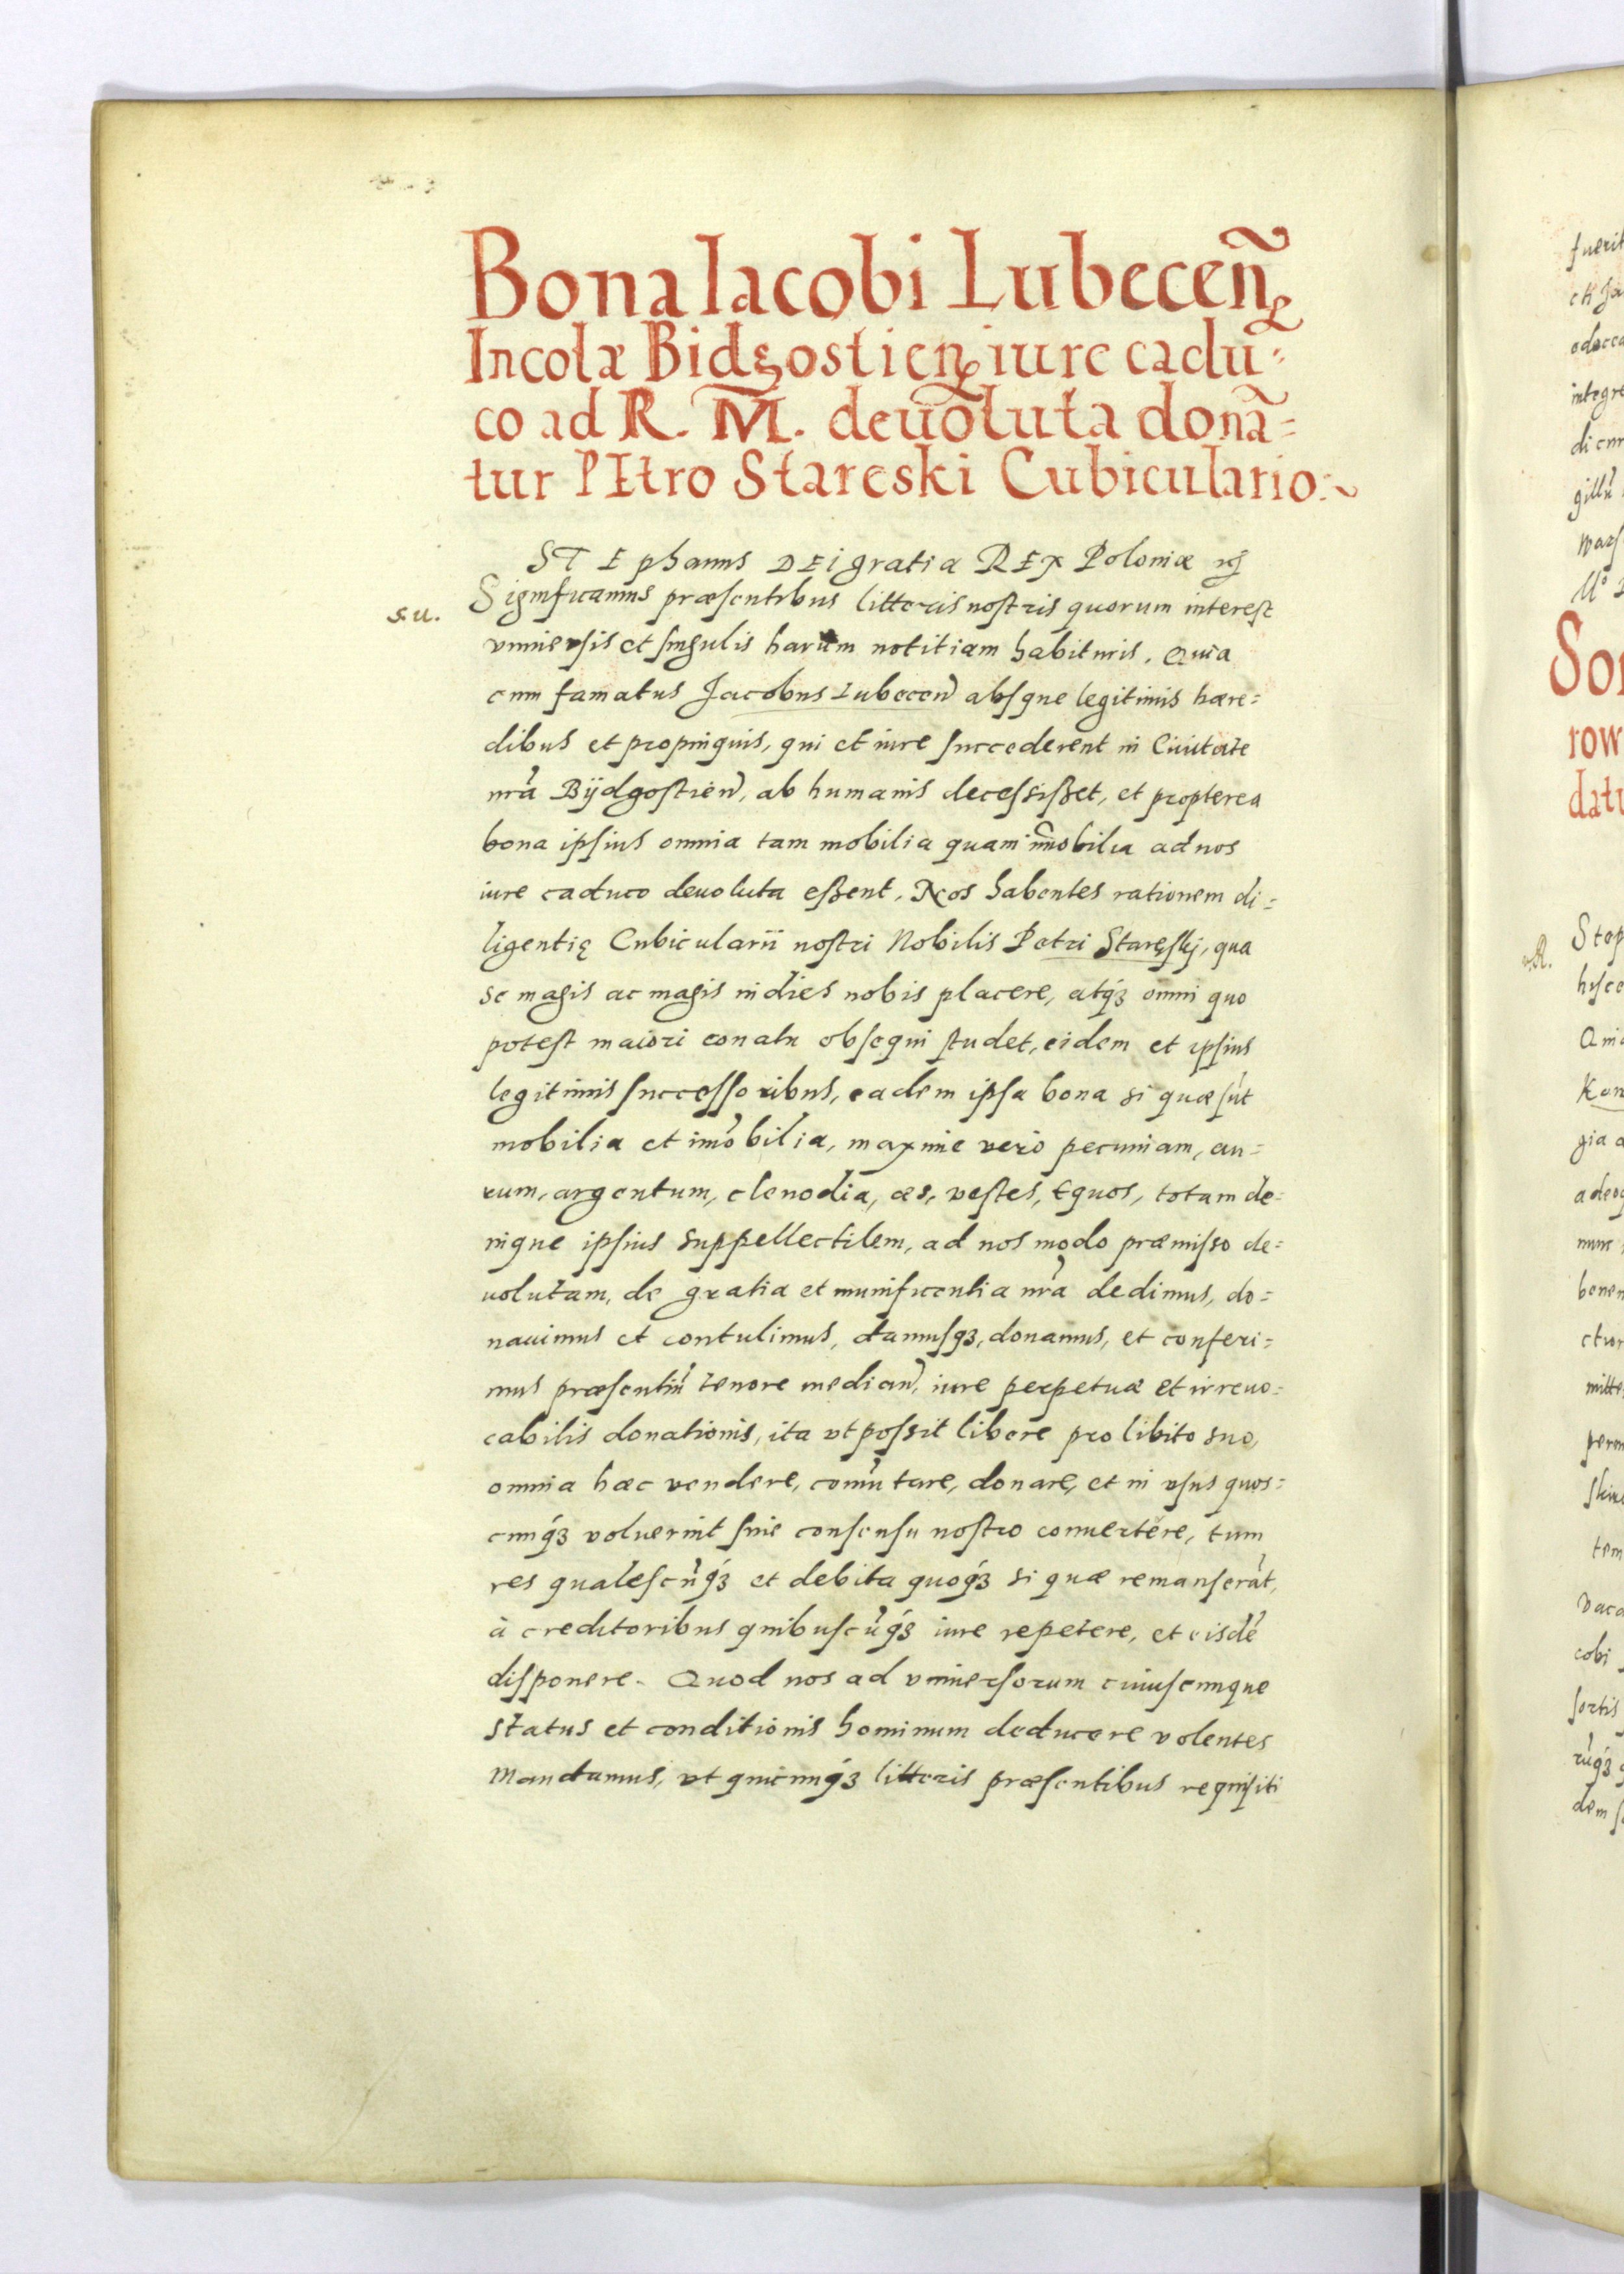 Bona Iacobi Lubecen̄
Incolæ Bidgostien̄ iure cadu-
co ad R. M̄. deuoluta donā-
tur PEtro Stareski Cubiculario.~
STEphanus DEI gratia REX Poloniæ
s.u.
Significamus præsentibus litteris nostris quorum interest
vniuersis et singulis harum notitiam habituris. Quia
cum famatus Jacobus Lubecen̄ absque legitimis hære=
dibus et propinquis, qui et iure succederent in Ciuitate
nrā Bÿdgostień, ab humanis decessißet, et propterea
bona ipsius omnia tam mobilia quam im̄obilia ad nos
iure caduco deuoluta eßent. Nos habentes rationem di=
ligentię Cubicularii nostri Nobilis Petri Staręskj, qua
se magis ac magis in dies nobis placere, atq́3 omni quo
potest maiori conatu obsequi studet, eidem et ipsius
legitimis successoribus, eadem ipsa bona si quæ sūt
mobilia et im̄obilia, maxime vero pecuniam, au=
rum, argentum, clenodia, æs, vestes, Equos, totam de=
nique ipsius suppellectilem, ad nos modo præmisso de=
uolutam, de gratia et munificentia nrā dedimus, do=
nauimus et contulimus, damusq3, donamus, et conferi=
mus præsentiū tenore median̄, iure perpetuæ et irreuo=
cabilis donationis, ita vt possit libere pro libito suo,
omnia hæc vendere, com̄utare, donare, et in vsus quos=
cunq́3 voluerint sine consensu nostro conuertere, tum
res qualescūq́3 et debita quoq́3 si quæ remanserāt,
à creditoribus quibuscūq́3 iure repetere, et eisdē
disponere. Quod nos ad vniuersorum cuiuscunque
status et conditionis hominum deducere volentes
Mandamus, vt quicunq́3 litteris præsentibus requisiti